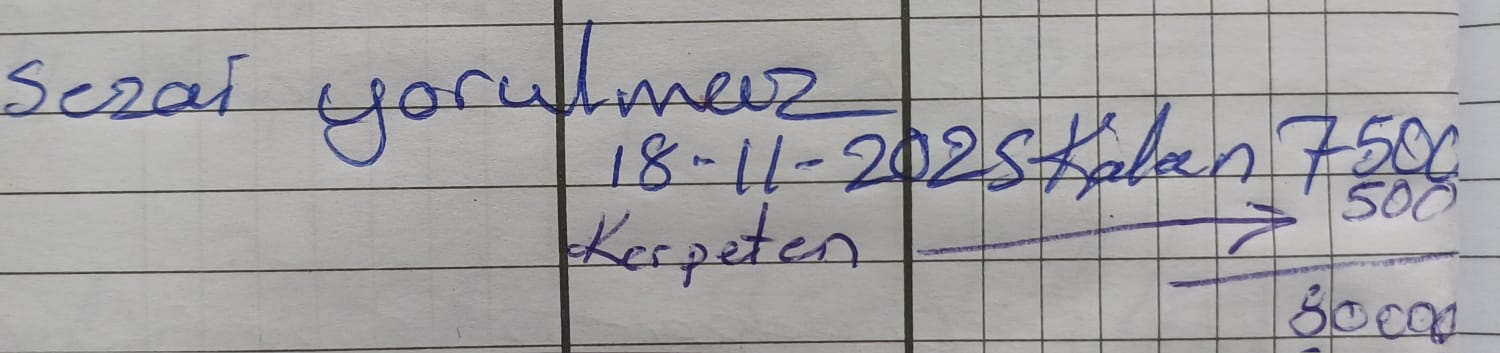 Sezai yorulmaz
18-11-2025 Kalan 7500
500
Kerpeten